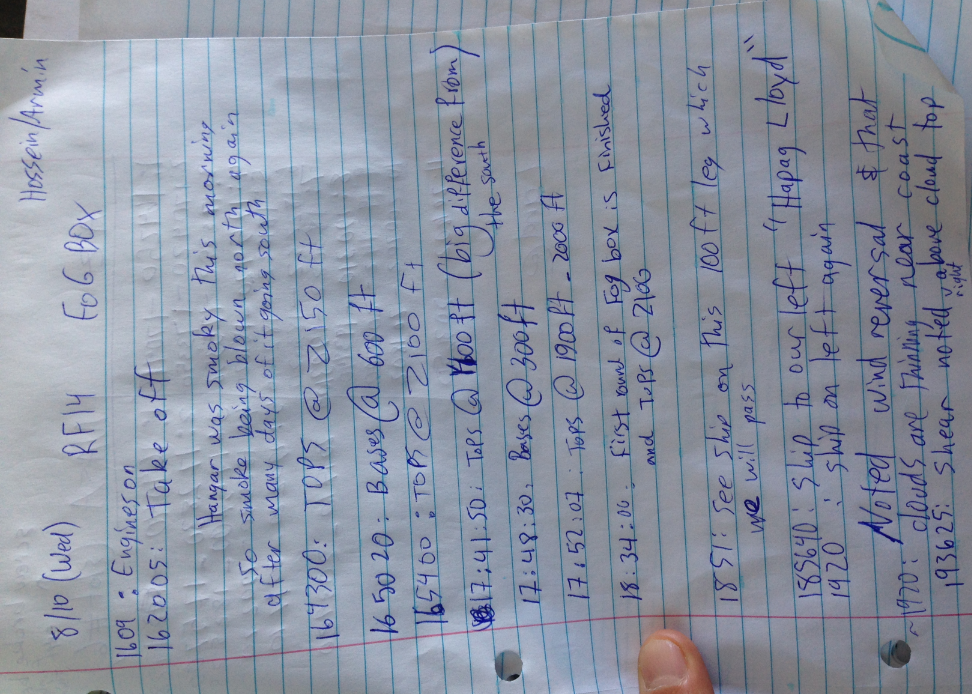 8/10 (Wed) RF14 FOG BOX Hossein/Armin
1609 : Engineson
162005: Take off
Hangar was smoky this morning
so smoke being blown north again
after many days of it going south
164300: TOPS @ 2150 ft
165020: Bases @ 600 ft
165400 : TOPS @ 2100 Ft
17:41:50: TOPS @ 1600 ft (big difference from)
the south
17:48:30: Bases @ 300ft
17:52:07: TOPS @ 1900ft - 2000 ft
18:34:00: First round of Fog box is Finished
and TOPS @ 2100
1851: see ship on this 100 ft leg which
we will pass
185640: ship to our left "Hapag Lloyd"
1920 : ship on left again
Noted wind reversal & that
~1920: clouds are thinning near coast
193625: shear noted right above cloud top